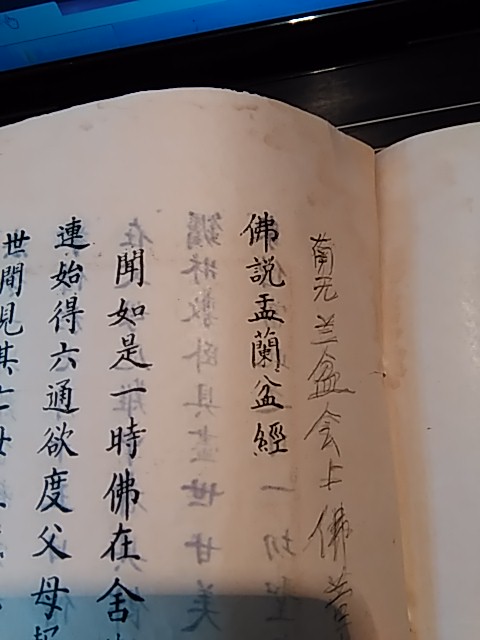 南无兰盆会上佛菩
佛説盂蘭盆經
聞如是一時佛在舍
連始得六通欲度父母
世間見其亡母